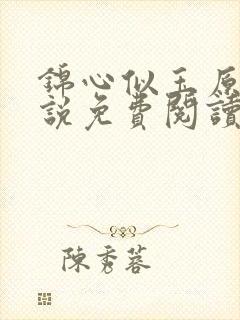 錦心似玉原
說免費閱讀
陳秀蓉